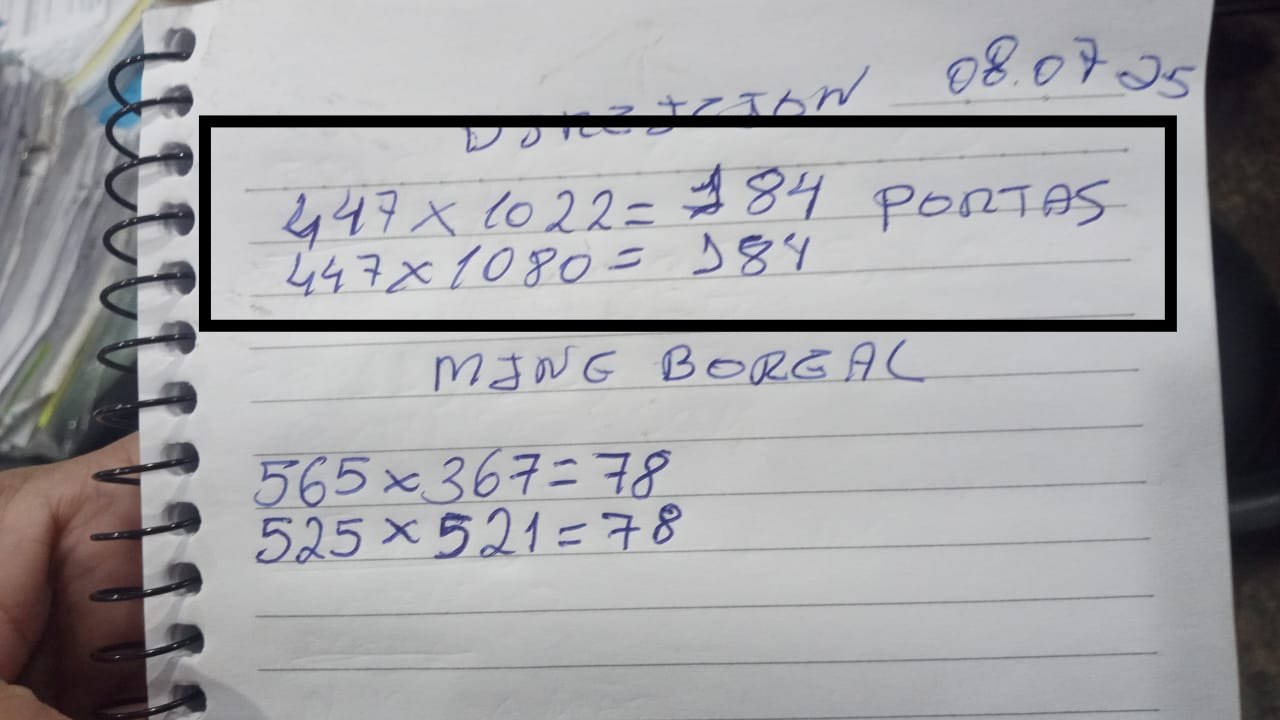 08.07 25
447 x 1022 = 184 PORTAS
447 x 1080 = 184
MING BOREAL
565 x 367 = 78
525 x 521 = 78